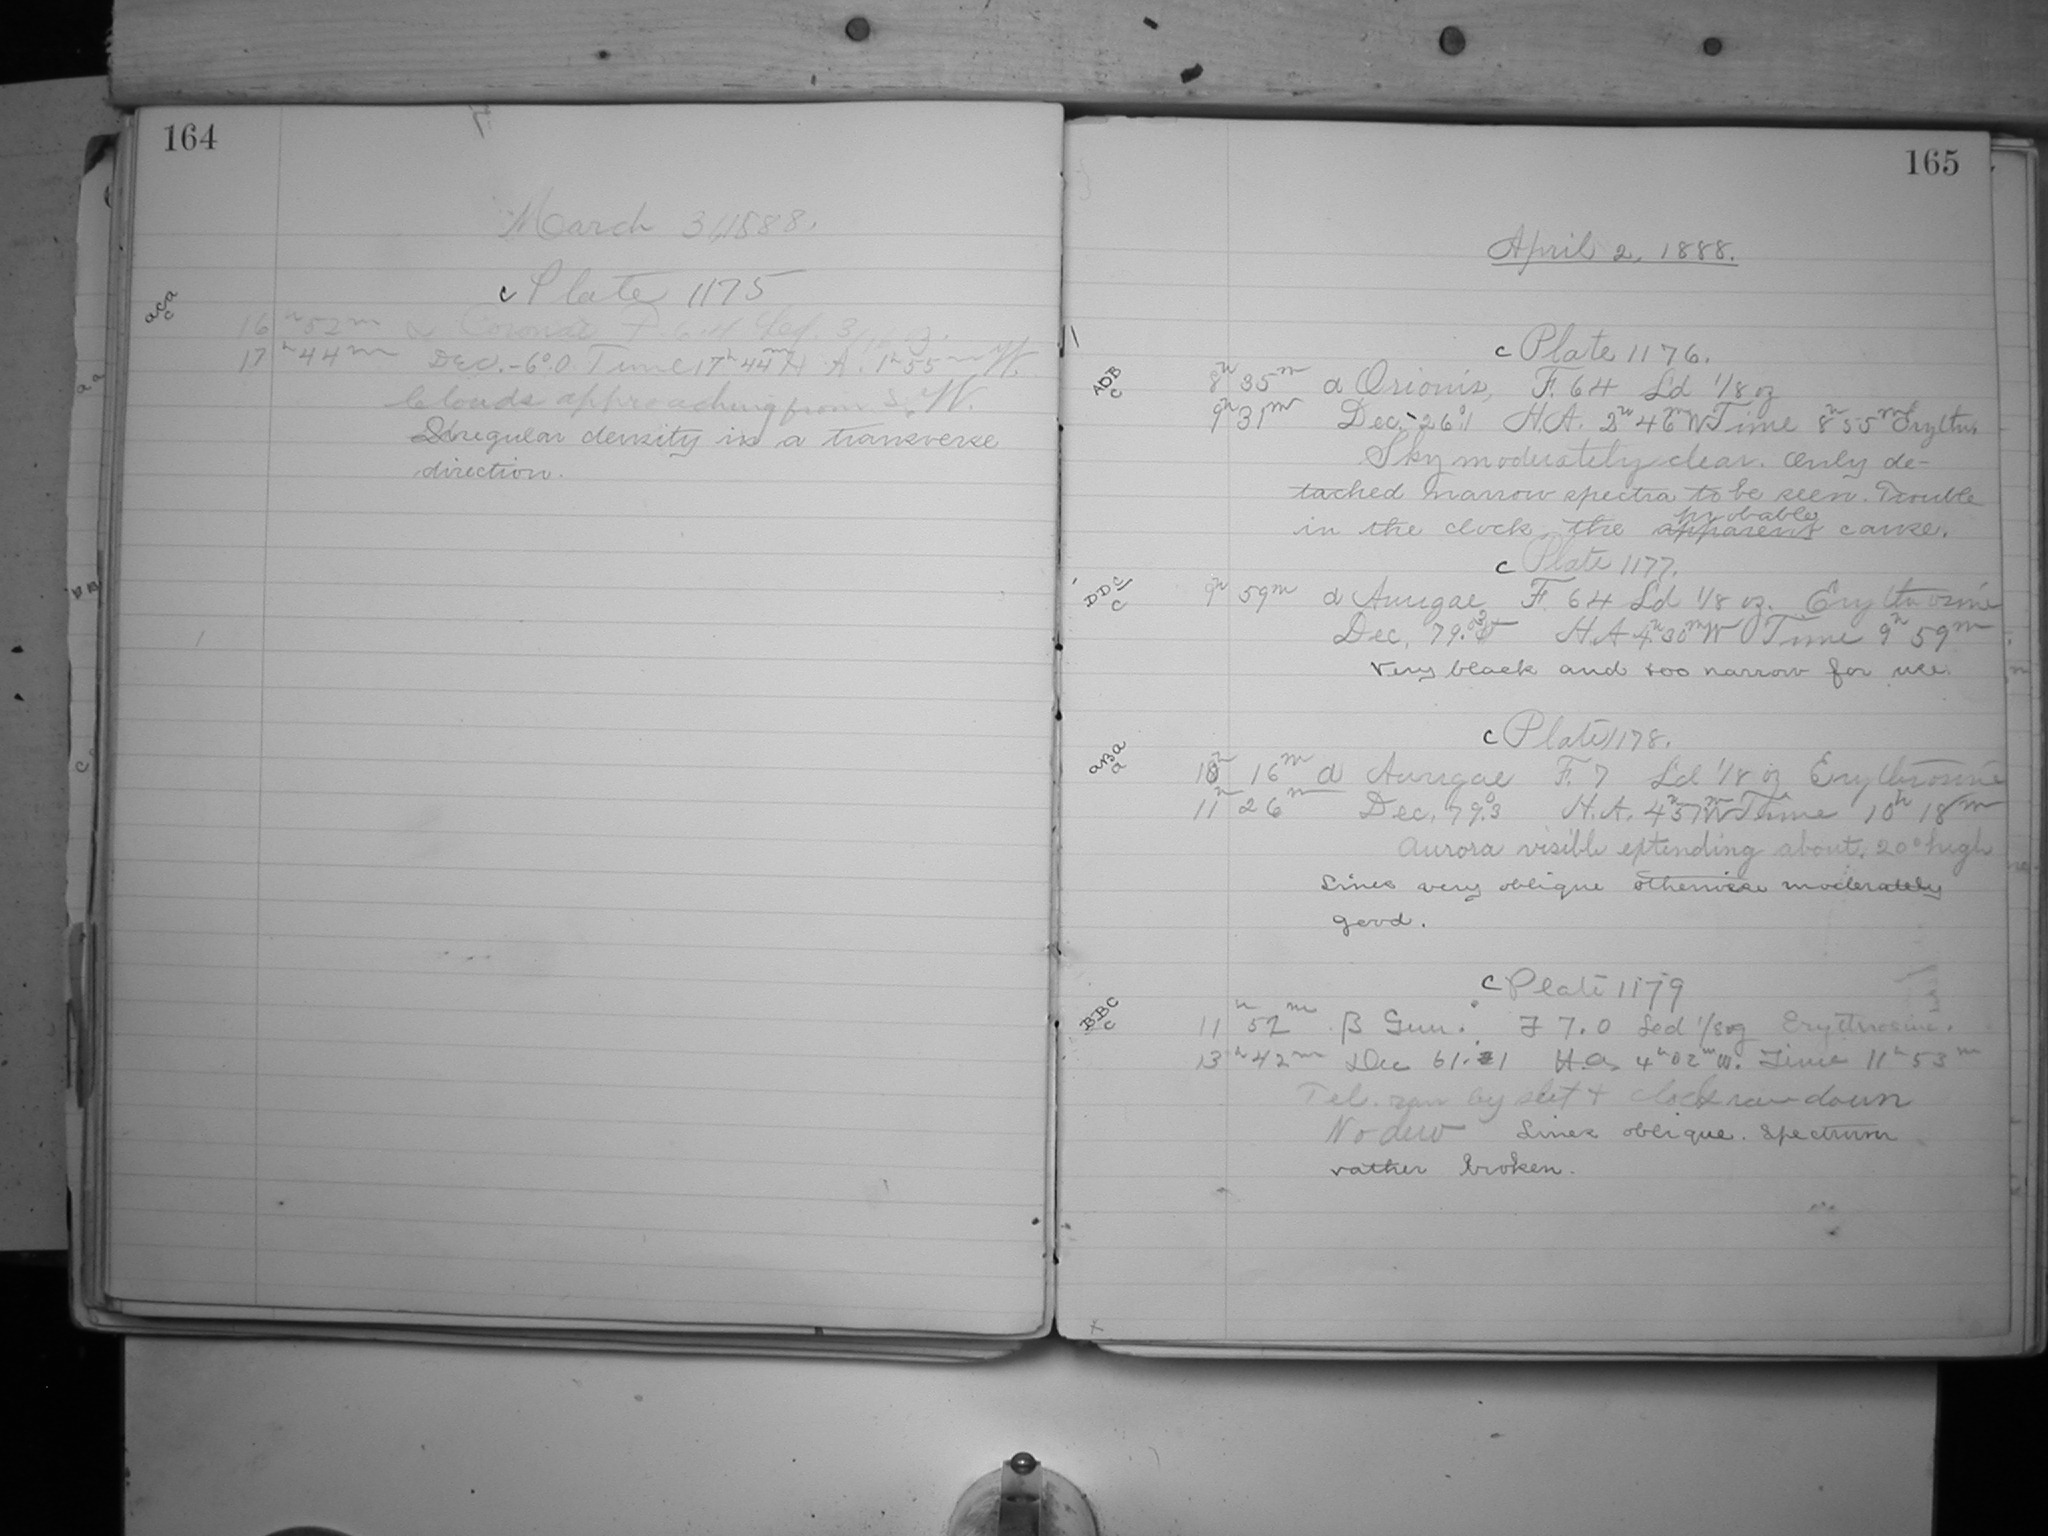 164
March 31, 1888.
c Plate 1175
aca
c
16h 52m α Coronae F. 64 Led. 3/16 oz.
17h 44m Dec. -6°.0 Time 17h 44m H. A. 1h 55m W.
Clouds approaching from S. W.
Irregular density in a transverse
direction.
165
April 2, 1888.
c Plate 1176.
ADB
c
8h 35m α Orionis, F. 64 L'd 1/8 oz
9h 31m Dec. -26°.1 H.A. 2h 46m W Time 8h 55m Erythr.
Sky moderately clear. Only de-
tached narrow spectra to be seen. Trouble
in the clock the apparent probable cause.
c Plate 1177.
DDC
c
9h 59m α Aurigae F. 64 L'd 1/8 oz. Erythrosine
Dec. 79.°3 H.A 4h 30m W Time 9h 59m
Very black and too narrow for use.
c Plate 1178.
aBa
a
10h 16m α Aurigae F. 7 L'd 1/8 oz Erythrosine
11h 26m Dec. 79°.3 H.A. 4h 57m W Time 10h 18m
Aurora visible extending about 20° high
Lines very oblique otherwise moderately
good.
c Plate 1179
BBC
c
11h 52m β Gem. F 7.0 Led 1/8 oz Erythrosine.
13h 42m Dec 61.1 H.a. 4h 02m W. Time 11h 53m
Tel. ran by slit + clock ran down
No dew Lines oblique. Spectrum
rather broken.